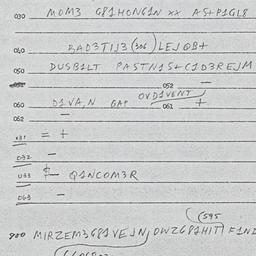 030 MOM3 G81HONG1N xx AS+P1GL8
040 BAD3T1J3 (306) LEJQB+
050 DUSB1LT PASTN1S+C1D3REJM
052 —
060 D1VA,N GAP OVD1VENT
061 +
062 —
031 = +
032 —
033 Q1NCOM3R
063 —
900 MIRZEM3G81VEJN, OWZG81HIT F1ND
(595